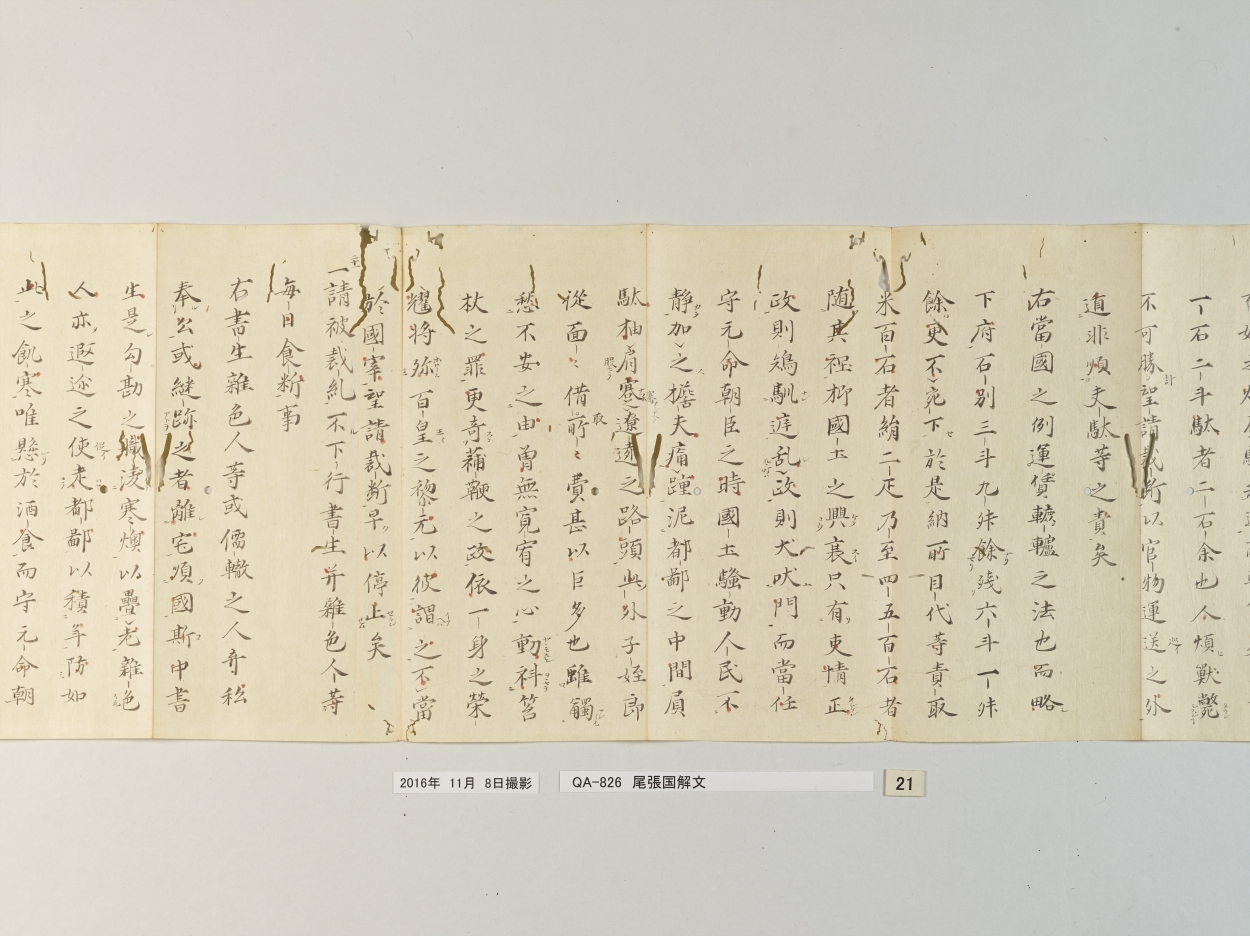 丁石二斗駄者二石余也人煩獣斃
不可勝計望請裁断以官物運送之外
道非煩夫駄等之責矣
右當國之例運賃轤轤之法也而略
下府石別三斗九舛餘残六斗一舛
餘更不宛下於是納所目代等責取
米百石者絹二疋乃至四五百石者
随其程抑國土之興衰只有吏情正
政則鵄馴庭乱政則犬吠門而當任
守元命朝臣之時國土騒動人民不
静加之擔夫痛踵泥都鄙之中間屓
駄柚肩蹇遼遠之路頭此外子姪郎
從面々借取所々費甚以巨多也雖觸
愁不安之由曽無寛宥之心動科笞
杖之罪更奇蒲鞭之政依一身之榮
耀将弥百皇之黎元以彼謂之不當
於國宰望請裁断早以停止矣
一請被裁糺不下行書生并雜色人等
毎日食断事
右書生雜色人等或儒轍之人奇私
奉公或継跡之者離宅煩國斯中書
生是勾勘之職凌寒燠以疊老雜色
人亦遐迩之使走都鄙以積年防如
此之飢寒唯懸於酒食而守元命朝
2016年 11月 8日撮影
QA-826 尾張国解文
21